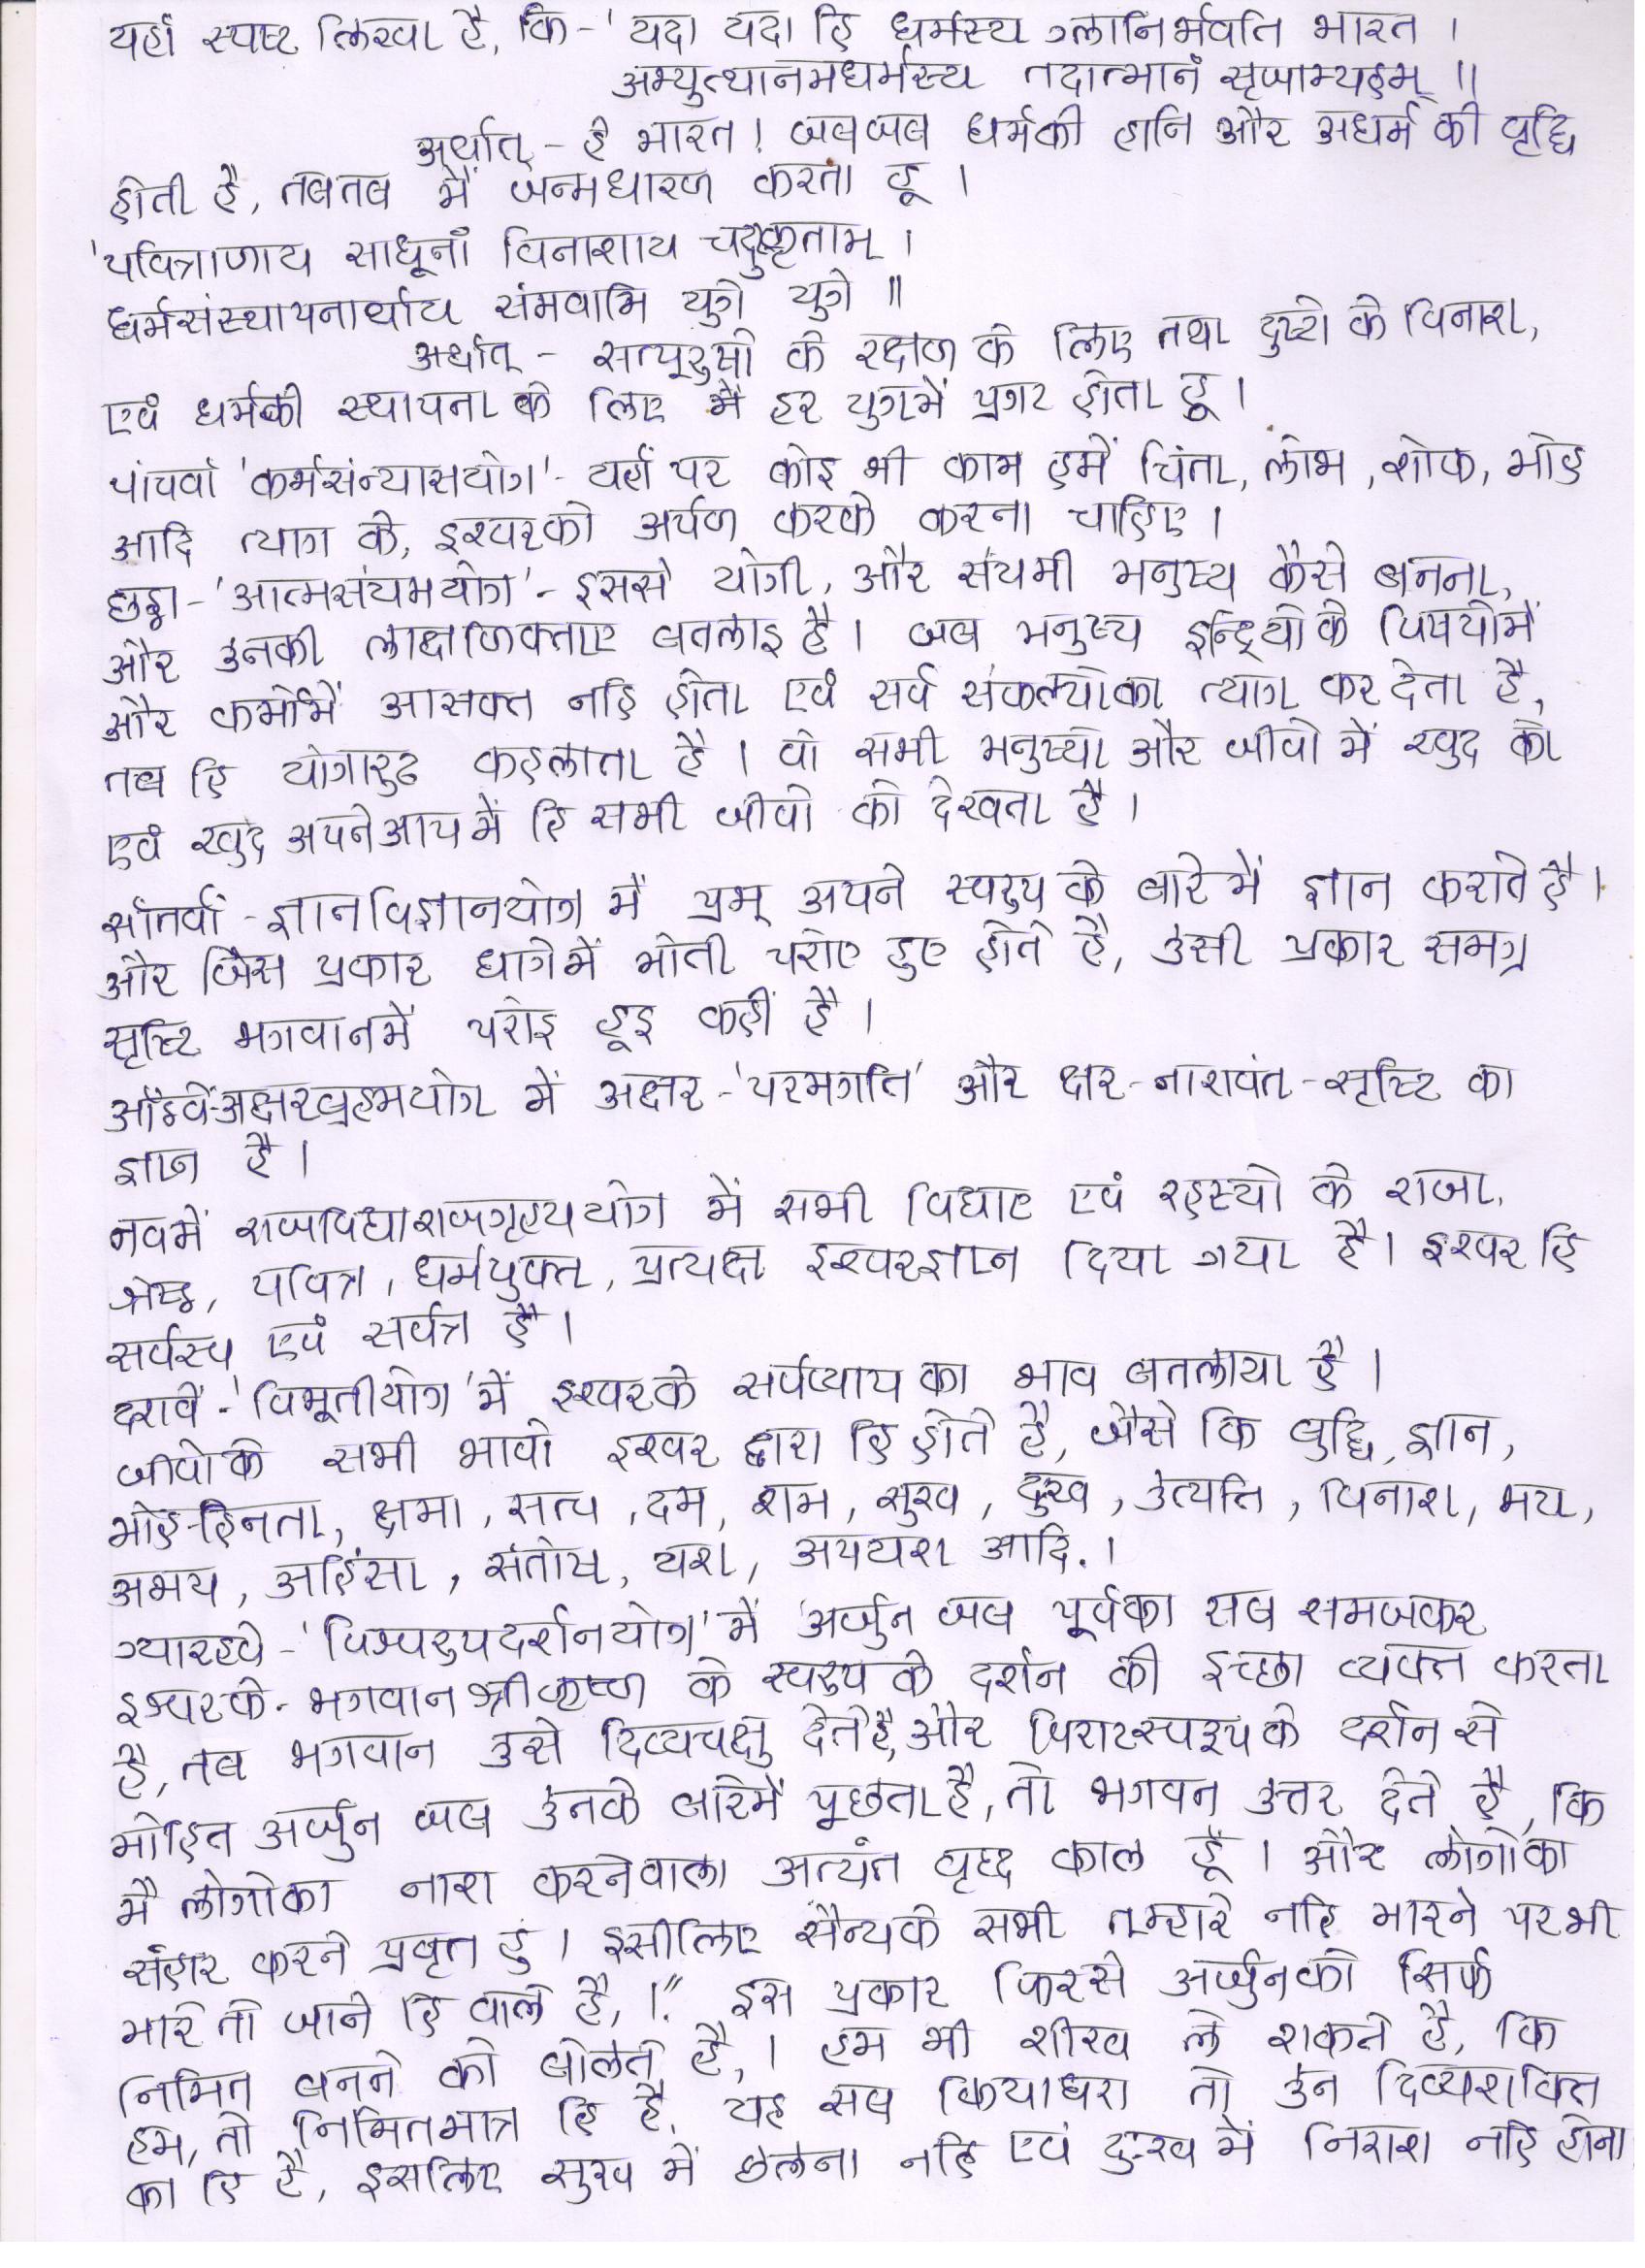 यहां स्पष्ट लिखा है, कि - 'यदा यदा हि धर्मस्य ग्लानिर्भवति भारत ।
अभ्युत्थानमधर्मस्य तदात्मानं सृजाम्यहम् ॥
अर्थात् - हे भारत! जबजब धर्मकी हानि और अधर्म की वृद्धि
होती है, तबतब मैं जन्मधारण करता हू ।
'पवित्राणाय साधूनां विनाशाय चदुष्कृताम् ।
धर्मसंस्थापनार्थाय संभवामि युगे युगे ॥
अर्थात् - सत्पुरुषो के रक्षण के लिए तथा दुष्टो के विनाश,
एवं धर्मकी स्थापना के लिए मैं हर युगमें प्रगट होता हू ।
पांचवां 'कर्मसंन्यासयोग' - यहां पर कोइ भी काम हमें चिंता, लोभ, शोक, मोह
आदि त्याग के, इश्वरको अर्पण करके करना चाहिए ।
छठ्ठा - 'आत्मसंयमयोग' - इससे योगी, और संयमी मनुष्य कैसे बनना,
और उनकी लाक्षणिकताए बतलाइ है । जब मनुष्य इन्द्रियोके विषयोमें
और कर्मोमें आसक्त नहि होता एवं सर्व संकल्पोका त्याग कर देता है,
तब हि योगारुढ कहलाता है । वो सभी मनुष्यो और जीवो में खुद को
एवं खुद अपनेआप में हि सभी जीवो को देखता है ।
सांतवां - ज्ञानविज्ञानयोग में प्रभू अपने स्वरुप के बारे में ज्ञान कराते है ।
और जिस प्रकार धागेमें मोती परोए हुए होते है, उसी प्रकार समग्र
सृष्टि भगवानमें परोइ हूइ कही है ।
आंठवें-अक्षरब्रह्मयोग में अक्षर - 'परमगति' और क्षर - नाशवंत - सृष्टि का
ज्ञान है ।
नवमें राजविद्याराजगृह्ययोग में सभी विद्याए एवं रहस्यो के राजा,
श्रेष्ठ, पवित्र, धर्मयुक्त, प्रत्यक्ष इश्वरज्ञान दिया गया है । इश्वर हि
सर्वस्व एवं सर्वत्र है ।
दशवें - 'विभूतीयोग' में इश्वरके सर्वव्याप का भाव बतलाया है ।
जीवोके सभी भावो इश्वर द्वारा हि होते है, जैसे कि बुद्धि, ज्ञान,
मोह-हिनता, क्षमा, सत्य, दम, शम, सुख, दुःख, उत्पत्ति, विनाश, भय,
अभय, अहिंसा, संतोष, यश, अपयश आदि. ।
ग्यारहवे - 'विश्वरुपदर्शनयोग' में अर्जुन जब पूर्वका सब समजकर
इश्वरके - भगवान श्रीकृष्ण के स्वरुप के दर्शन की इच्छा व्यक्त करता
है, तब भगवान उसे दिव्यचक्षु देतेहै, और विराटस्वरुप के दर्शन से
मोहित अर्जुन जब उनके बारेमें पूछता है, तो भगवन उत्तर देते है, कि
मै लोगोका नाश करनेवाला अत्यंत वृद्ध काल हूँ । और लोगोका
संहार करने प्रवृत हुं । इसीलिए सैन्यके सभी तुम्हारे नहि मारने पर भी
मारे तो जाने हि वाले है, ।" इस प्रकार फिरसे अर्जुनको सिर्फ
निमित बनने को बोलते है, । हम भी शीख ले शकते है, कि
हम, तो निमितमात्र हि है, यह सब कियाधरा तो उन दिव्यशक्ति
का हि है, इसलिए सुख में छलना नहि एवं दुःख में निराश नहि होना